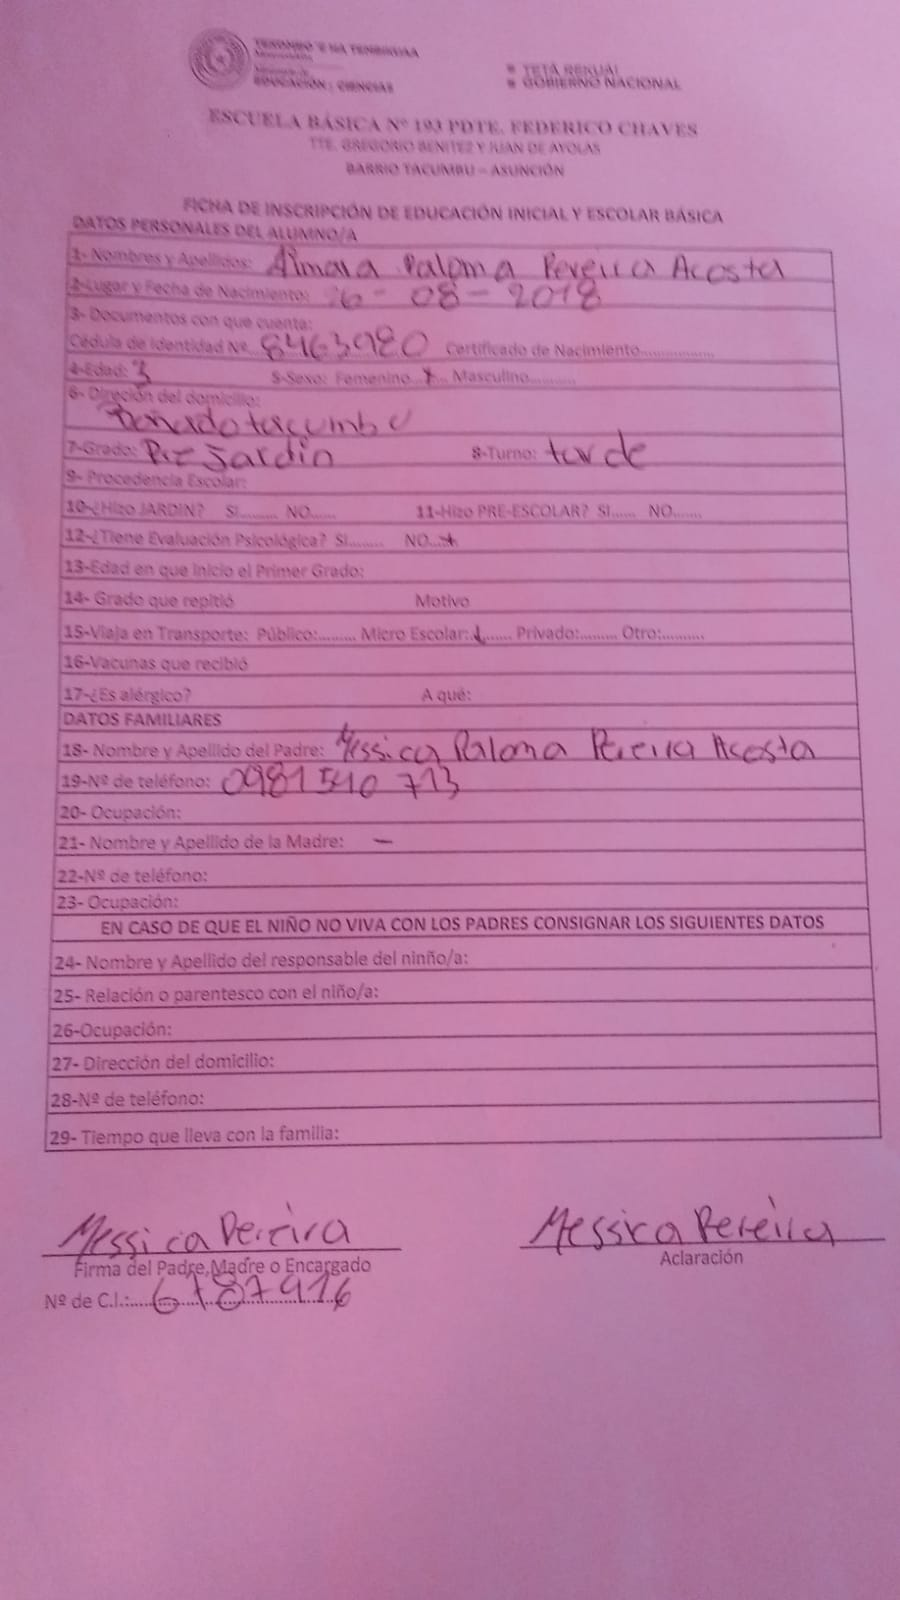 TETÃ REKUÁI
EDUCACIÓN Y CIENCIAS
GOBIERNO NACIONAL
ESCUELA BÁSICA Nº 193 PDTE. FEDERICO CHAVES
TTE. GREGORIO BENITEZ Y JUAN DE AYOLAS
BARRIO TACUMBU – ASUNCIÓN
FICHA DE INSCRIPCIÓN DE EDUCACIÓN INICIAL Y ESCOLAR BÁSICA
DATOS PERSONALES DEL ALUMNO/A
1- Nombres y Apellidos: Aimara Paloma Pereira Acosta
2-Lugar y Fecha de Nacimiento: 26 - 08 - 2018
3- Documentos con que cuenta:
Cédula de Identidad Nº 8463980 Certificado de Nacimiento................
4-Edad: 3 5-Sexo: Femenino...x... Masculino...........
6- Direción del domicilio:
Bañado tacumbu
7-Grado: Pre Jardin 8-Turno: tarde
9- Procedencia Escolar:
10-¿Hizo JARDIN? SI......... NO...... 11-Hizo PRE-ESCOLAR? SI...... NO.......
12-¿Tiene Evaluación Psicológica? SI........ NO...x
13-Edad en que Inicio el Primer Grado:
14- Grado que repitió Motivo
15-Viaja en Transporte: Público:......... Micro Escolar:........ Privado:......... Otro:..........
16-Vacunas que recibió
17-¿Es alérgico? A qué:
DATOS FAMILIARES
18- Nombre y Apellido del Padre: Messica Paloma Pereira Acosta
19-Nº de teléfono: 0981 540 713
20- Ocupación:
21- Nombre y Apellido de la Madre: —
22-Nº de teléfono:
23- Ocupación:
EN CASO DE QUE EL NIÑO NO VIVA CON LOS PADRES CONSIGNAR LOS SIGUIENTES DATOS
24- Nombre y Apellido del responsable del ninño/a:
25- Relación o parentesco con el niño/a:
26-Ocupación:
27- Dirección del domicilio:
28-Nº de teléfono:
29- Tiempo que lleva con la familia:
Messica Pereira Messica Pereira
Firma del Padre,Madre o Encargado Aclaración
Nº de C.I.:.... 6787916